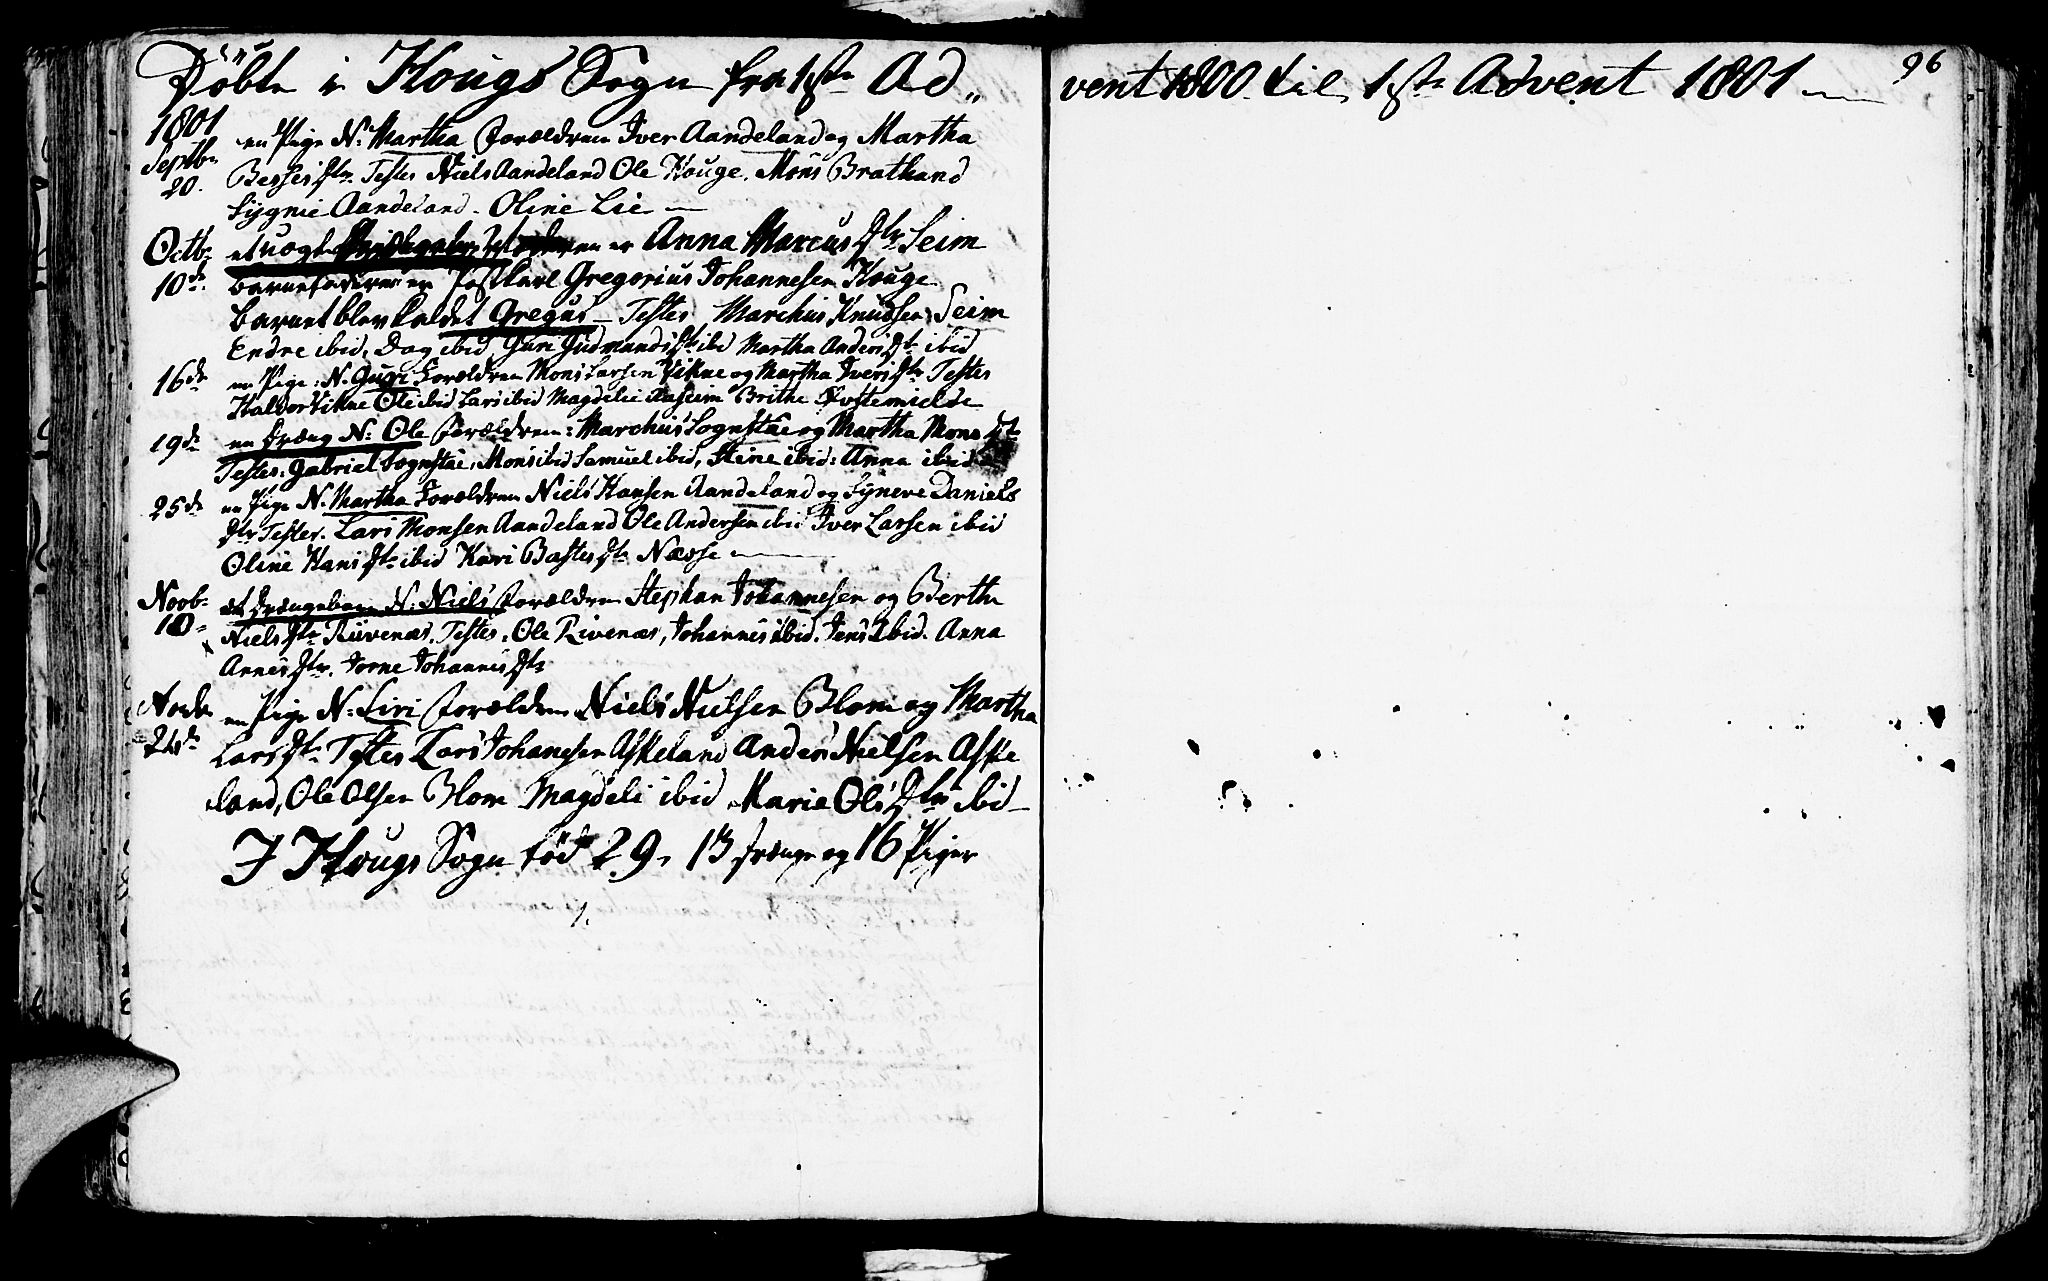 Döbte i Hougs Sogn fra 1ste Ad„
vent 1800 til 1ste Advent 1801
96
1801
Septbr 20. en Pige N: Martha Forældrene Iver Aandeland og Martha
Besses Dtr Testes Niels Aandeland Ole Houge. Mons Brathand
Sygnie Aandeland. Oline Lie
Octbr 10de et uægte er Anna Marcus Dtr Seim
barnefaderen er Gregorius Johannesen Houge
barnet blev kaldet Gregus Testes Marchus Knudsen Seim
Endre ibid. Dag ibid Guri Gudmunds Dtr ibd Martha Anders Dtr ibid
16de en Pige: N. Guri Forældrene Mons Larsen Vikne og Martha Ivers Dtr Testes
Halvor Vikne Ole ibid Lars ibid Magdelie Brithe
19de en Dræng N: Ole Forældrene: Marchus Sognstae og Martha Mons Dtr
Testes. Gabriel Sognstae, Mons ibid Samuel ibid, Stine ibid: Anna ibid
25de en Pige N. Martha Forældrene Niels Hansen Aandeland og Syneve Daniels
Dtr Testes. Lars Monsen Aandeland Ole Andersen ibid Iver Larsen ibid
Oline Hans Dtr ibid Kari Bastes Dtr Næsse
Novb: 10 et Drængebarn N. Niels Forældrene Stephan Johannesen og Berthe
Niels Dtr Rivenæs. Testes. Ole Rivenæs, Johannes ibid. Jens ibid. Anna
Annes Dtr. Torne Johannes Dtr
Novbr en Pige N: Siri Forældrene Niels Nielsen Blom og Martha
Lars Dtr Testes Lars Johanesen Askeland Anders Nielsen Aske
land, Ole Olsen Blom Magdeli ibid Marie Ols Dtr ibid
I Hougs Sogn föd 29, 13 Drænge og 16 Piger